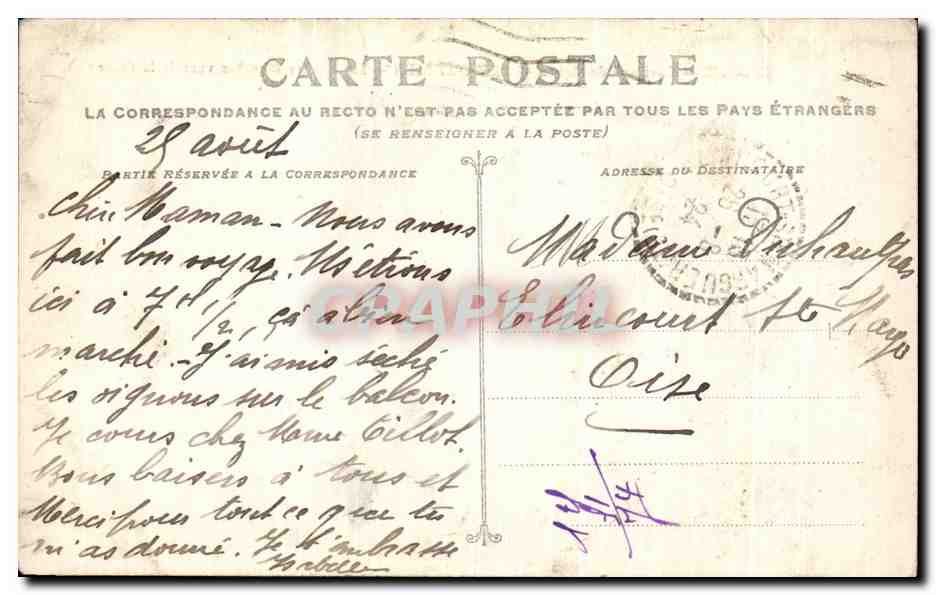 CARTE POSTALE
LA CORRESPONDANCE AU RECTO N'EST PAS ACCEPTÉE PAR TOUS LES PAYS ÉTRANGERS
(SE RENSEIGNER A LA POSTE)
25 août
PARTIE RÉSERVÉE A LA CORRESPONDANCE
Chère Maman - Nous avons
fait bon voyage. N/s étions
ici à 7h 1/2, ça a bien
marché - J'ai mis sécher
les oignons sur le balcon.
Je cours chez Mame Tillot.
Bons baisers à tous et
Merci pour tout ce que tu
m'as donné. Je t'embrasse
Isabelle
ADRESSE DU DESTINATAIRE
Madame
Elincourt Ste Marg
Oise
CRAPHIL